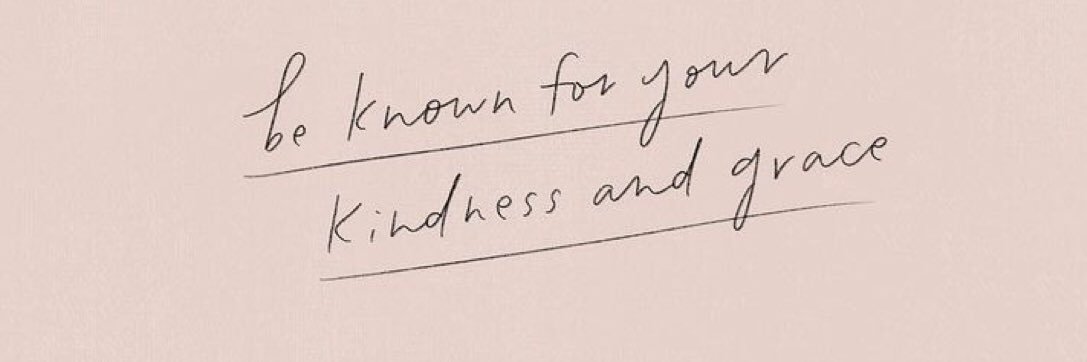 be known for your
kindness and grace